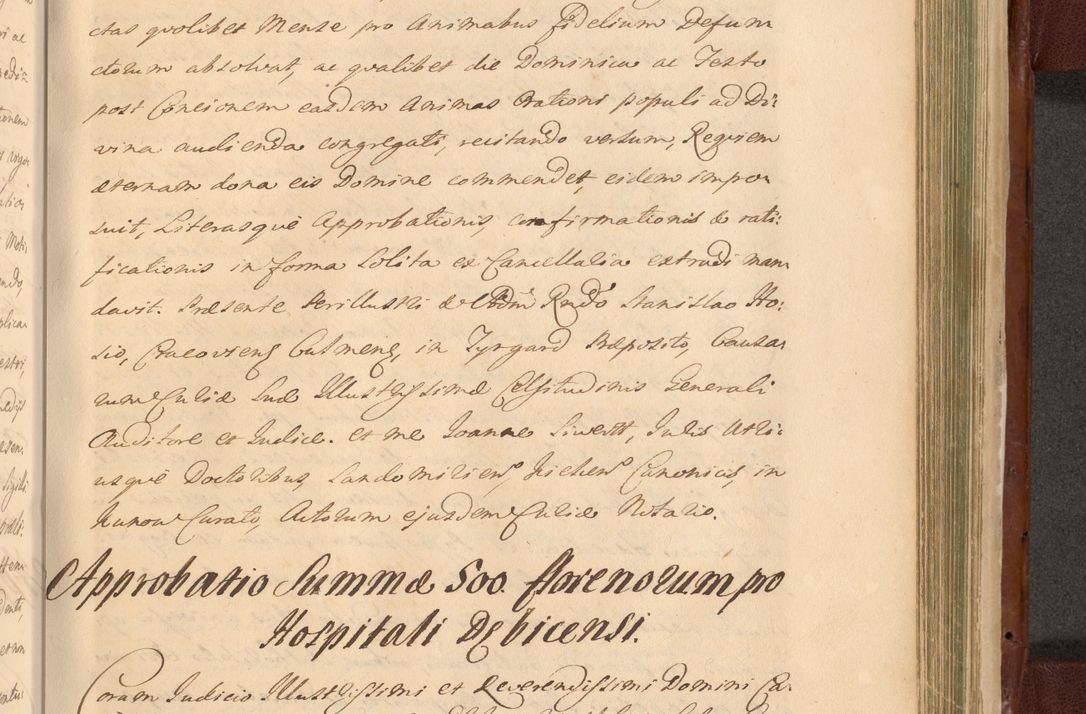 ctas qvolibet Mense pro Animabus fidelium Defun
ctorum absolvat, ac qvalibet die Dominica ac Festo
post Concionem easdem Animas Orationi populi ad Di:
vina audienda congregati, recitando versum, Reqviem
æternam dona eis Domine commendet, eidem impo
suit, Literasqve Approbationis, confirmationis & rati:
ficationis in forma solita ex Cancellaria extradi man
davit. Præsente Perillustri & Rndo Stanislao Ho:
sio, Cracovien Culmens, in Tyrgard Præposito, Causa
rum Curiæ Suæ Illustrissimæ Celsitudinis Generali
Auditore et Judice. et me Joanne Siwertt, Juris Utri:
usqvè Doctoribus, Sandomirien, Kielcen Canonicis, in
Kunow Curato, Actorum ejusdem Curiæ Notario.
Approbatio Summæ 500. florenorum pro
Hospitali Dębicensi.
Coram Judicio Illustrissimi et Reverendissimi Domini Ca: